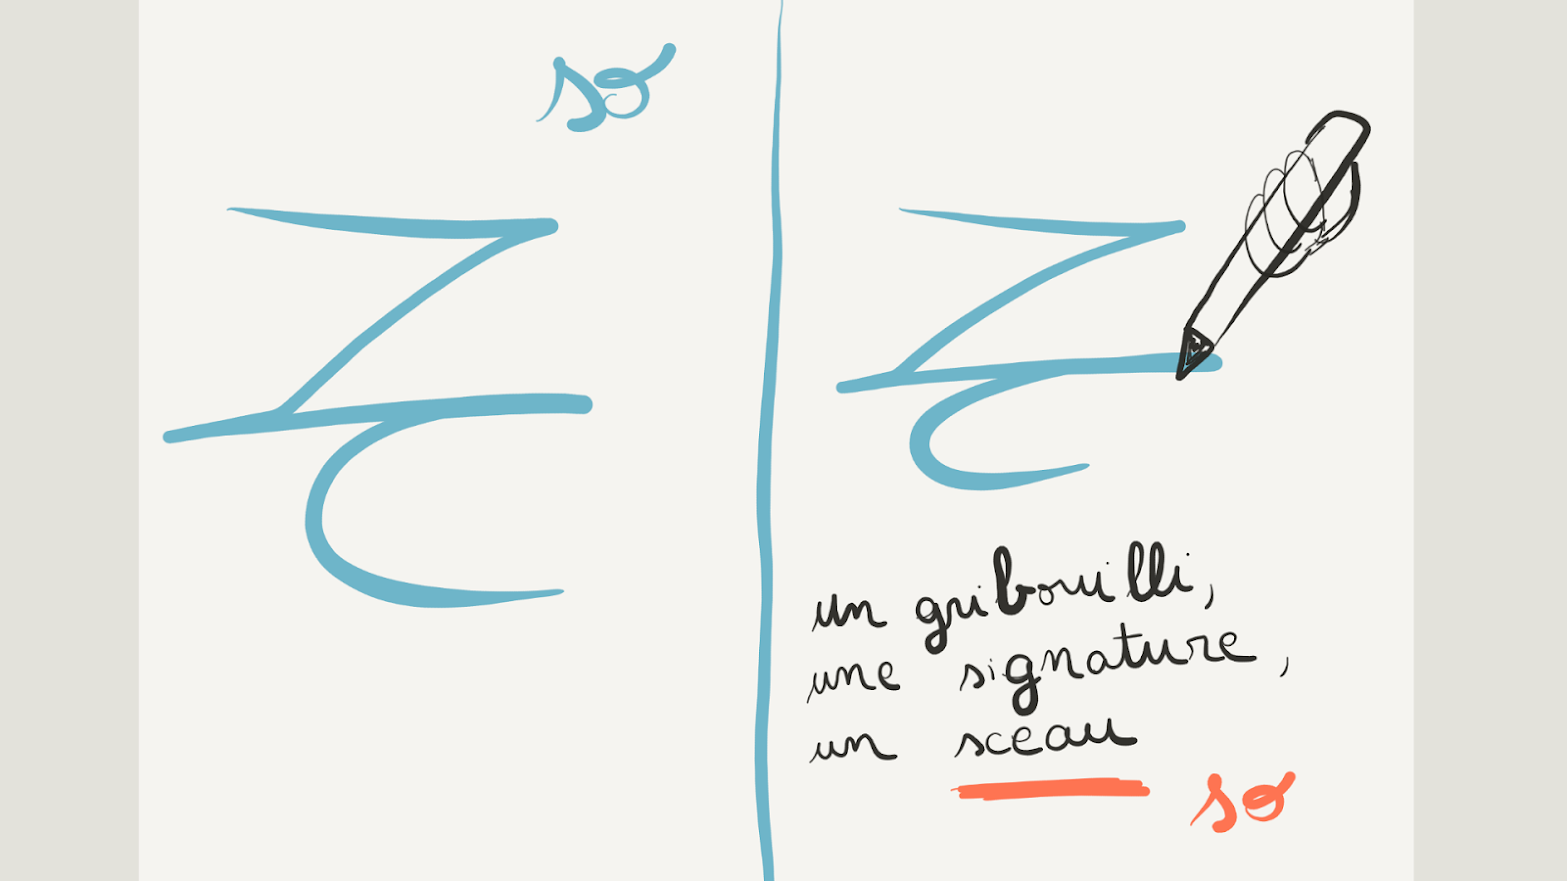 so
un gribouilli,
une signature,
un sceau
so